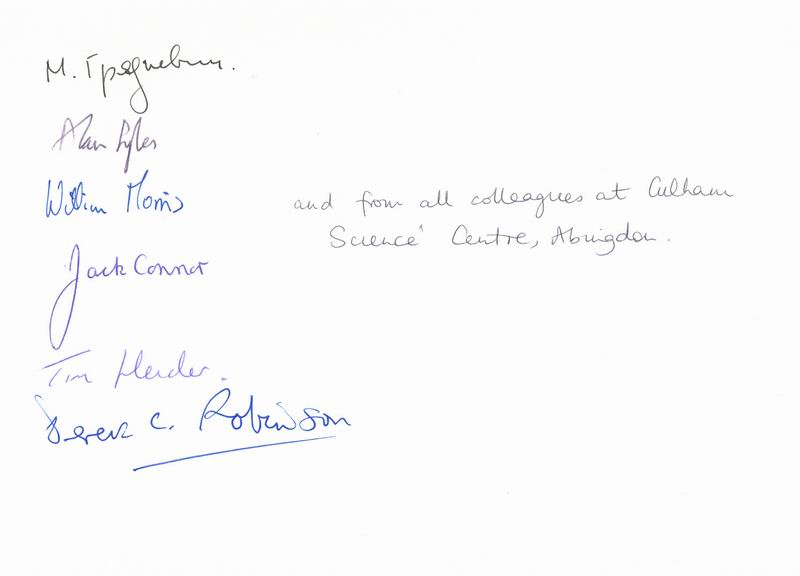 М. Грязневич.
Alan Sykes
William Morris
and from all colleagues at Culham
Science Centre, Abingdon.
Jack Connor
Tim Hender.
Derek C. Robinson